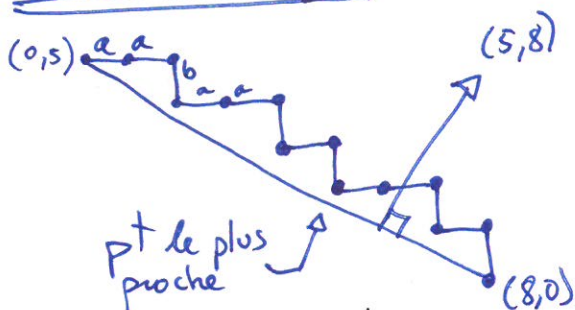 (0,5) a a b a a
(5,8)
pt le plus
proche
(8,0)